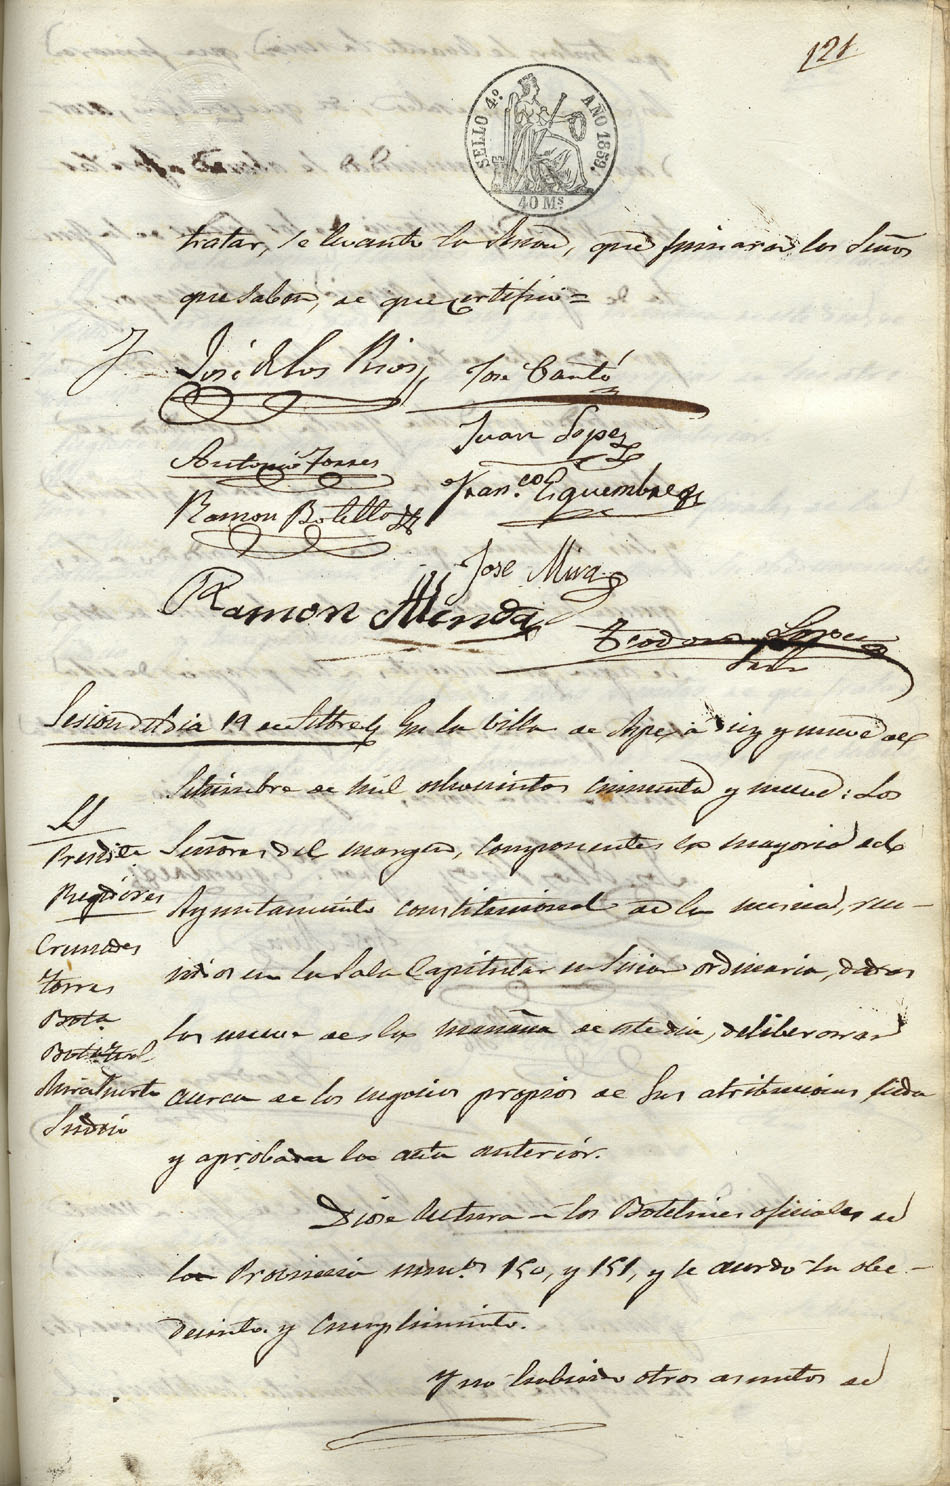 121.
SELLO 4.º AÑO 1859.
40 Ms.
tratar, se levantó la sesion, que firmaran los Seños
que saben, de que certifico =
José de los Rios
José Cantó
Juan Lopez
Antonio Torres
Fran.co Esquembre
Ramon Botella
José Mira
Ramon Alenda
Teodoro Lopez
Sesion del dia 19 de Setbre. En la Villa de Aspe, á diez y nueve de
Setiembre de mil ochocientos cincuenta y nueve: Los
SS
Presdte Señores del margen, componentes la mayoria del
Regidores Ayuntamiento constitucional de la misma, reu-
Cremades nidos en la Sala Capitular en Sesion ordinaria, dadas
Torres
Bota los nueve de la mañana de este dia, deliberaron
Mira Puerto acerca de los negocios propios de sus atribuciones, leida
Sindico
y aprobada la acta anterior.
Dióse lectura a los Boletines oficiales de
la Provincia num.os 150, y 151, y se acordó su obe-
decimto. y cumplimiento.
Y no habiendo otros asuntos de